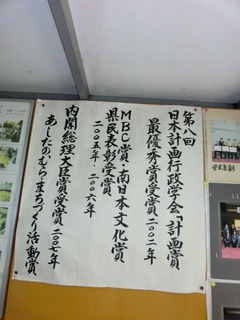 第八回
日本計画行政学会「計画賞」
最優秀賞受賞二〇〇二年
MBC賞、南日本文化賞
県民表彰受賞
二〇〇五年・二〇〇六年
内閣総理大臣賞受賞二〇〇七年
あしたのむら・まちづくり活動賞